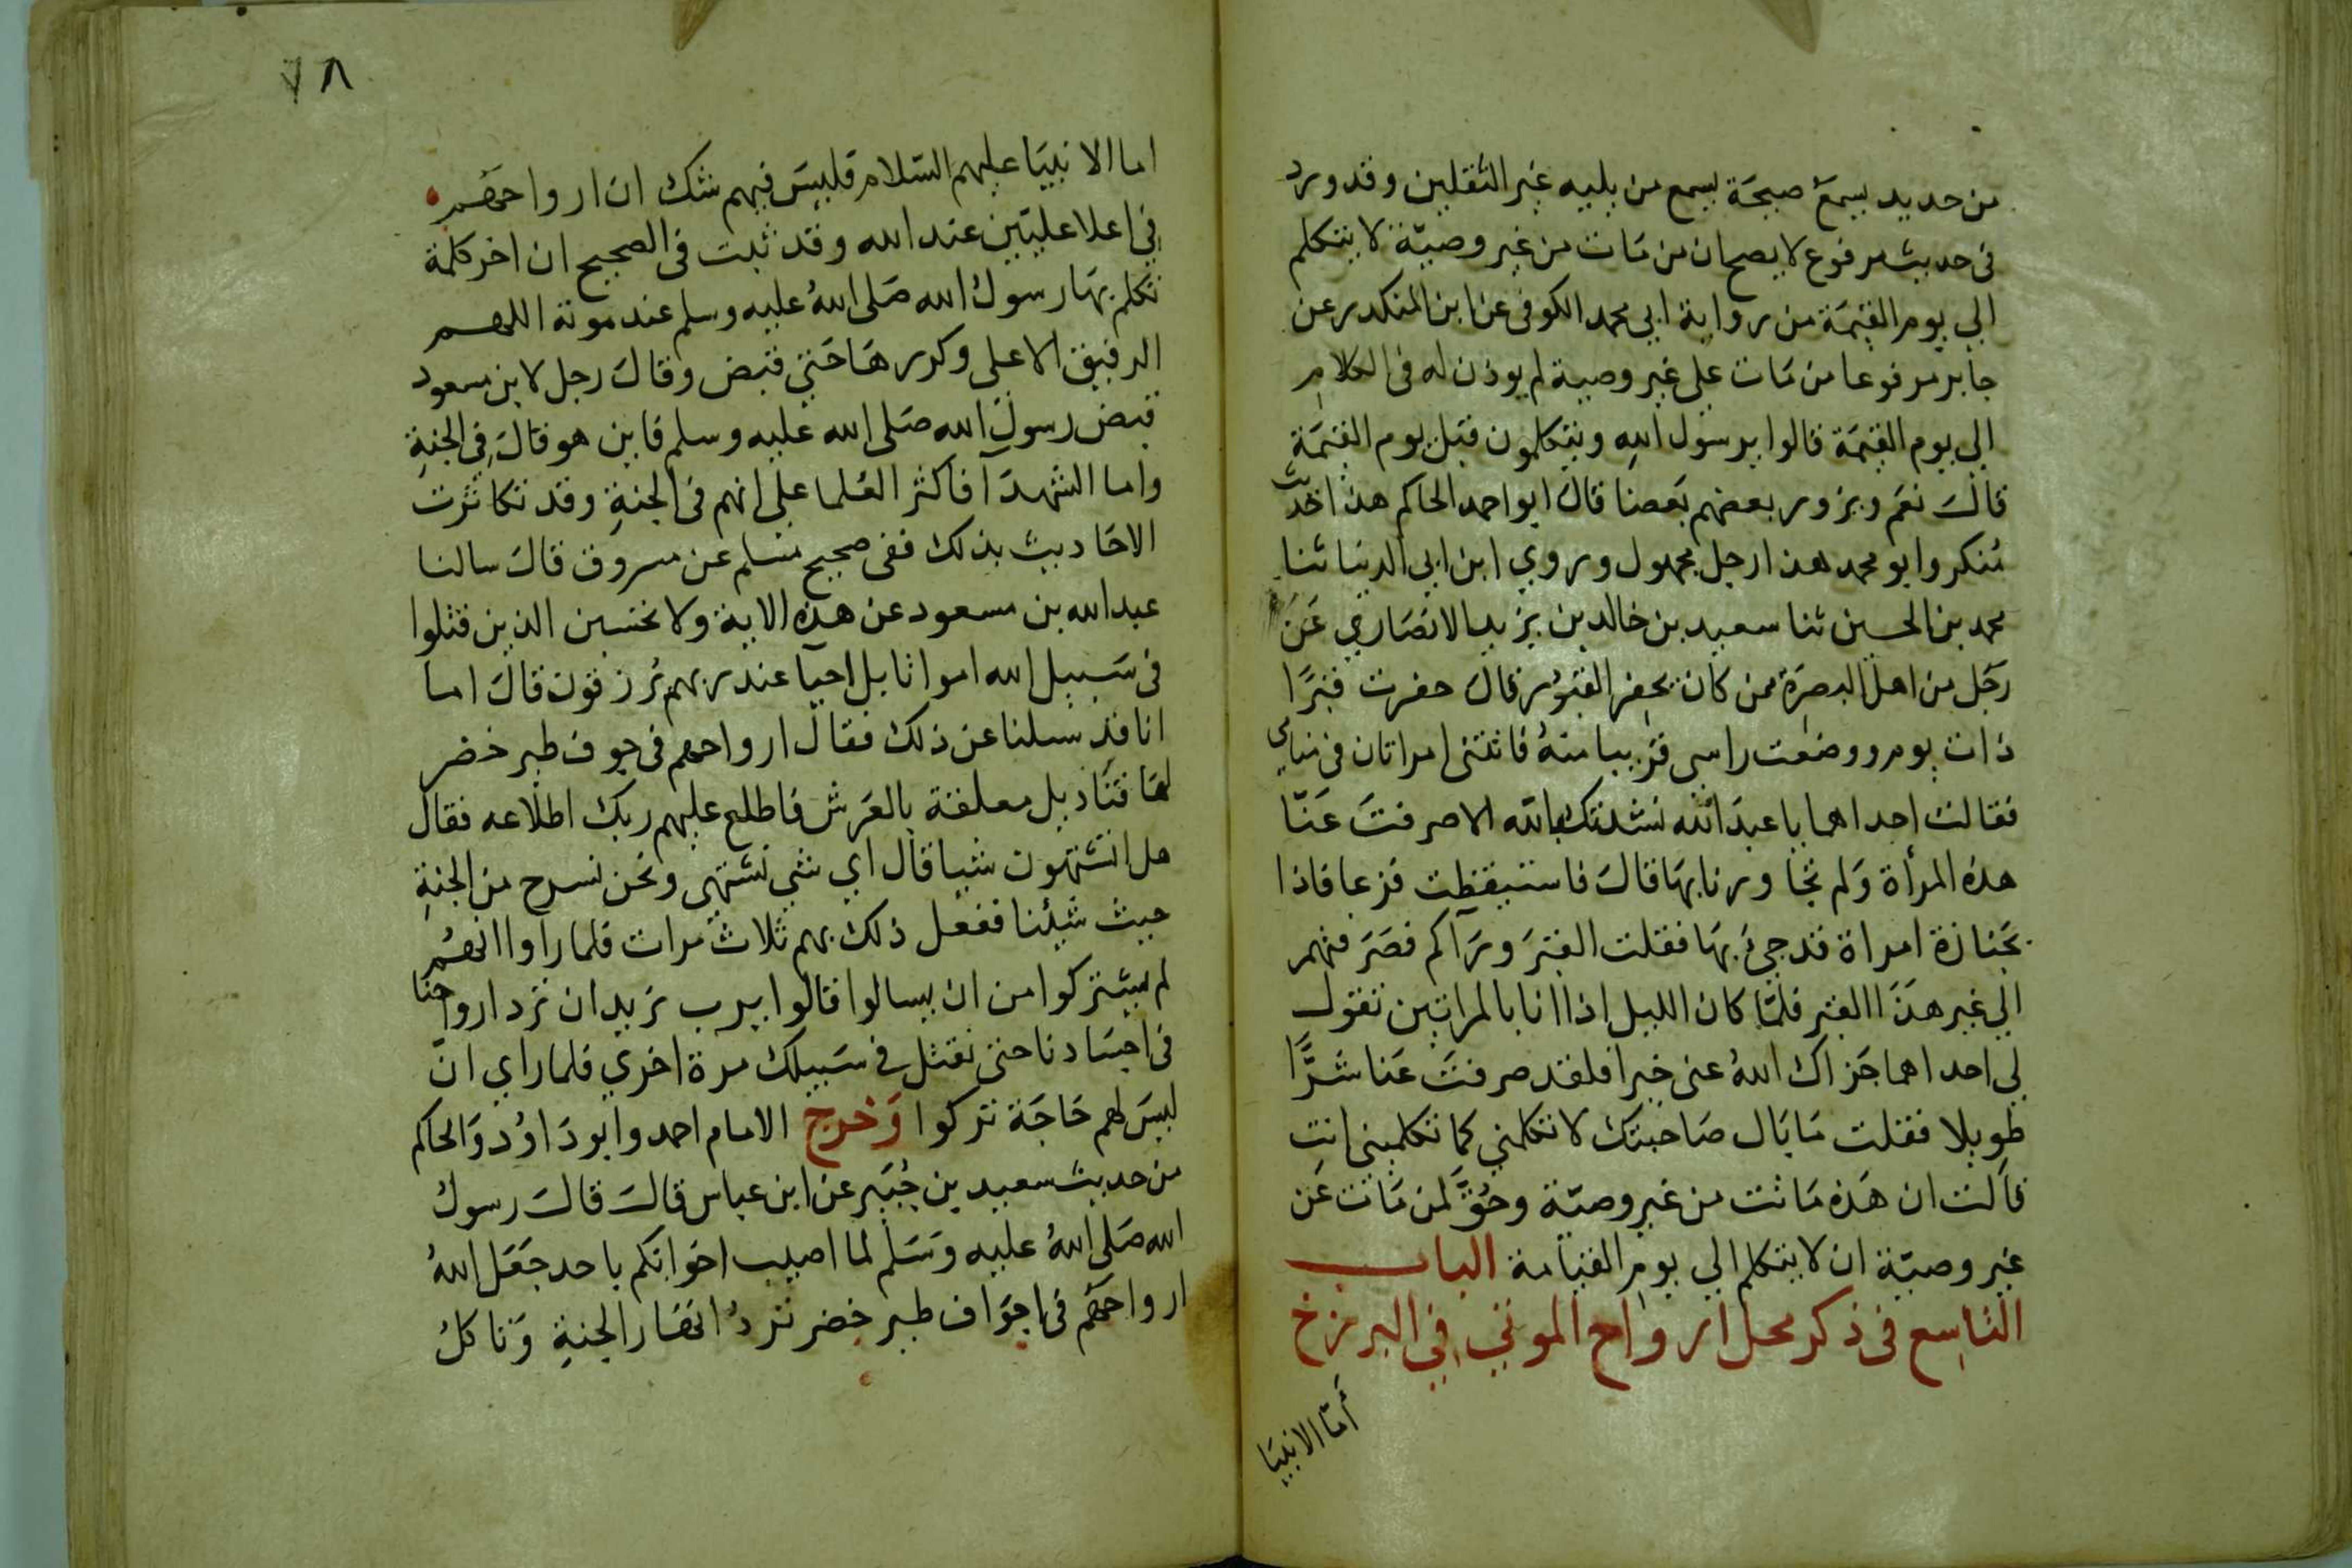 من حديد يسمع صيحة يسمع من يليه غير الثقلين وقد ورد
في حديث مرفوع لا يصح ان من مَات من غير وصيّة لا يتكلم
الي يوم القيمَة من رواية ابي محمد الكوفي عن ابن المنكدر عن
جابر مرفوعا من مَات علي غير وصية لم يوذن له في الكلام
الي يوم القيمَة قالوا يرسُول الله ويتكلمون قبل يوم القيمَة
قالَ نعَم ويزور بعضهم بَعضا قالَ ابو احمد الحاكم هذا حديث
مُنكر وابو محمد هذا رجل مجهول وروي ابن ابي الدنيا ثنا
محمد بن الحسين ثنا سعيد بن خالد بن يزيد الانصَاري عَن
رَجُل من اهل البصرَة ممن كان يحفر القبُور قالَ حفرت قبرًا
ذات يوم ووضعت راسي قريبا منهُ فاتتني امراتان في منامي
فقالت احداهما يا عبدَ الله نشدتك بالله الا صرفتَ عَنّا
هذه المرأة وَلم تجاورنا بهَا قالَ فاستيقظت فزعا فاذا
بجَنازة امراة قد جيَ بهَا فقلت القبرَ ورَآكم فصَرَفتهم
الي غير هَذَا القبر فلمَّا كان الليل اذا انا بالمراتين تقول
لي احداهما جَزاك اللهُ عني خيرا فلقد صرفتَ عَنا شرًّا
طويلا فقلت مَا بَال صَاحبتك لا تكلمني كما تكلميني انتِ
قالت ان هَذه مَاتت من غير وصيّة وحُقَّ لمن مَات عَن
غير وصيّة ان لا يتكلم الي يوم القيامة الباب
التاسع في ذكر محل ارواح الموتي في البرزخ
أمّا الانبيَا
٧٨
اما الانبيَا عليهم السّلام فليسَ فيهم شك ان ارواحَهُم
في اعلا عليّين عند الله وقد ثبت في الصحيح ان اخر كلمة
تكلم بهَا رسول الله صَلى اللهُ عليه وسلم عند موته اللهم
الرفيق الاعلي وكررهَا حَتي قبض وقالَ رجل لابن مسعود
قبض رسولَ الله صَلى الله عليه وسلم فاين هو قالَ في الجنةِ
واما الشهدَآ فاكثر العُلما علي انهم في الجنةِ وقد تكاثرت
الاحَاديث بذلك ففي صحيح مسلم عن مسروق قالَ سالنا
عبد الله بن مسعود عن هذه الاية ولا تحسبن الذين قتلوا
في سَبيل الله امواتا بل احيا عند ربهم يُرزقون قالَ اما
انا قد سلنا عن ذلك فقالَ ارواحهم في جوف طير خضر
لهَا قنَاديل معلقة بالعَرش فاطلع عليهم ربك اطلاعه فقال
هل تشتهون شيا قال اي شي نشتهي ونحن نسرح من الجنةِ
حيث شيئنا ففعل ذلك بهم ثلاث مرات فلما راوا انهُم
لم يتركوا من ان يسالوا قالوا يرب نريد ان ترد ارواحنَا
في اجسَادنا حتي نقتل في سَبيلك مرة اخري فلما راي انّ
ليسَ لهم حَاجَة تركوا وَخرج الامام احمد وابو دَاوُد وَالحاكم
من حديث سعيد بن جُبَير عن ابن عباس قالَ قالَ رسولُ
الله صَلى اللهُ عليه وَسَلم لما اصيب اخوانكم باحد جَعَل اللهُ
ارواحَهم في اجوَاف طير خضر تردُ انهَار الجنةِ وَتاكلُ